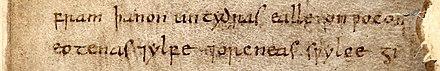 fram þanon untydras ealle onƿocon
eotenas ⁊ ylfe ⁊ orcneas sƿylce gi